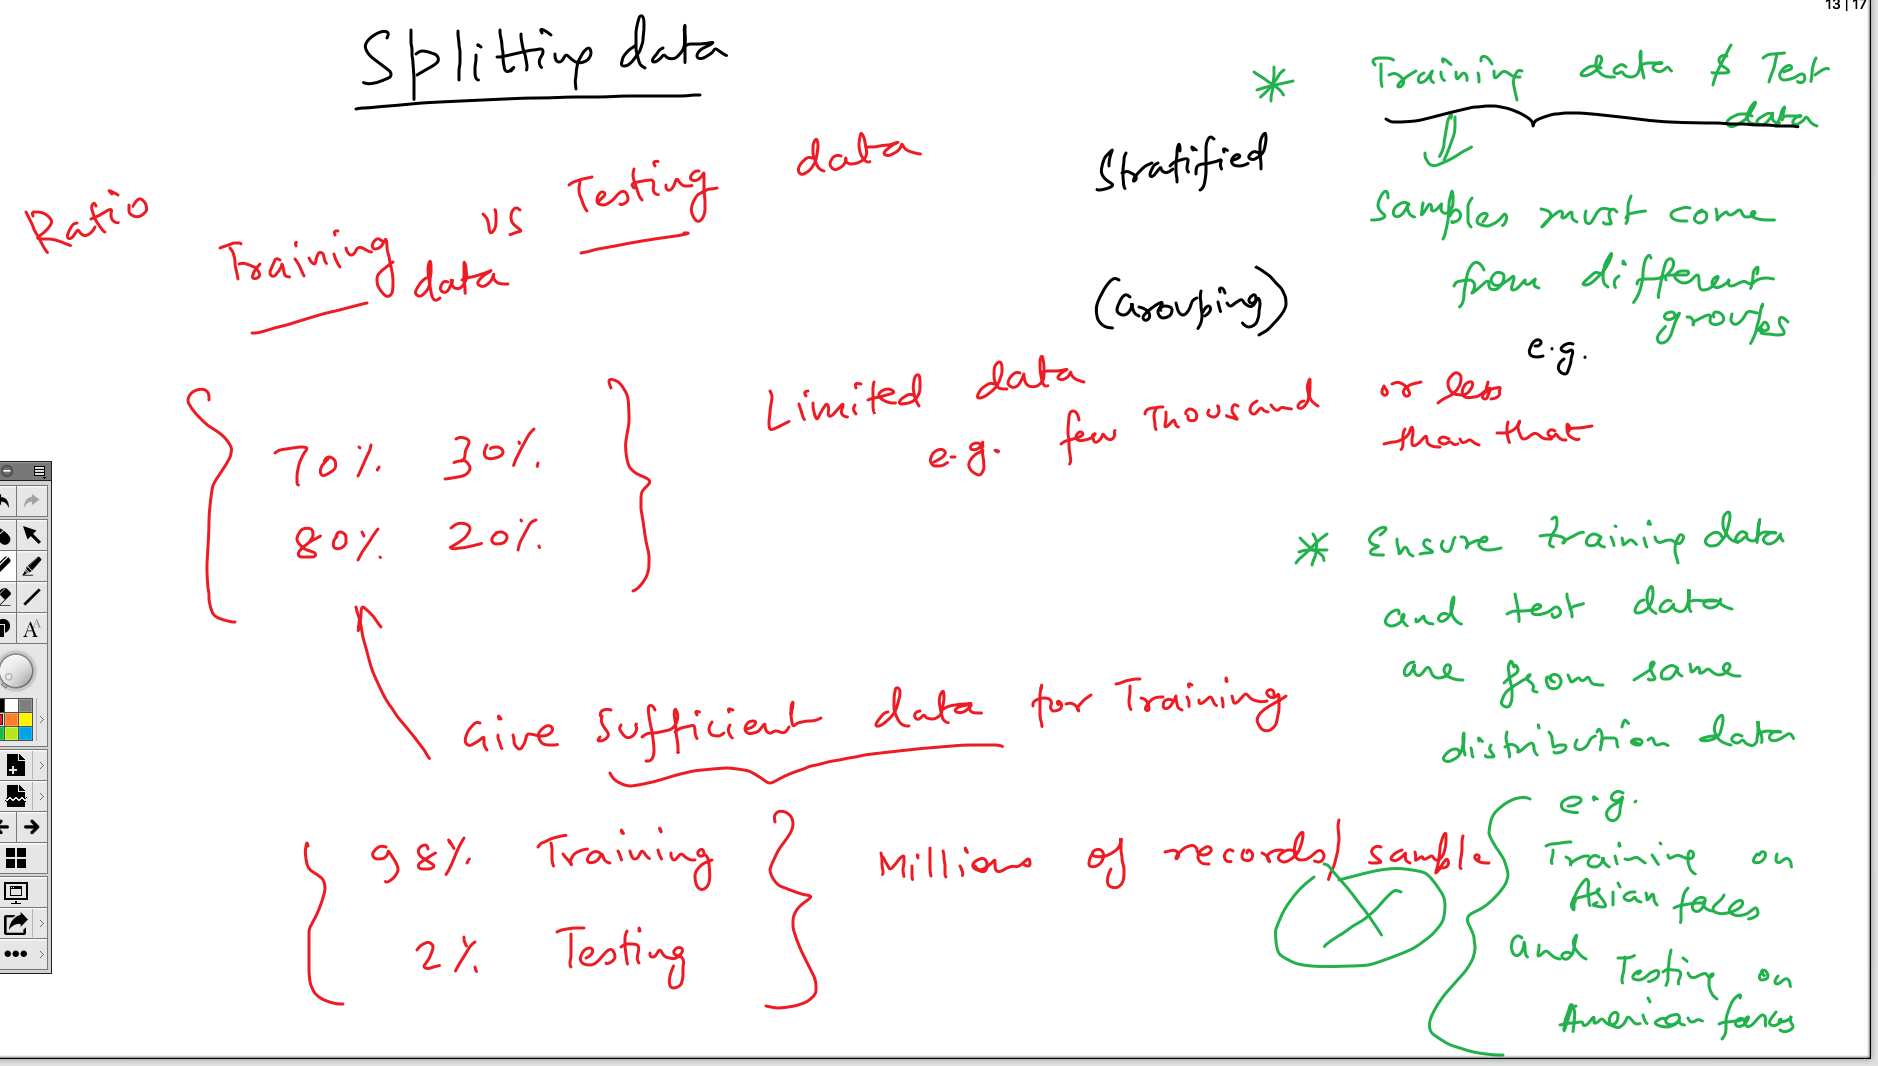 13 | 17
Splitting data
Ratio
Training data vs Testing data
70% 30%
80% 20%
Limited data
e.g. few Thousand or less
than that
Give sufficient data for Training
98% Training
2% Testing
Millions of records/ sample
Stratified
(Grouping)
* Training data & Test
data
Samples must come
from different
groups
e.g.
* Ensure training data
and test data
are from same
distribution data
e.g.
Training on
Asian faces
and Testing on
American faces
A